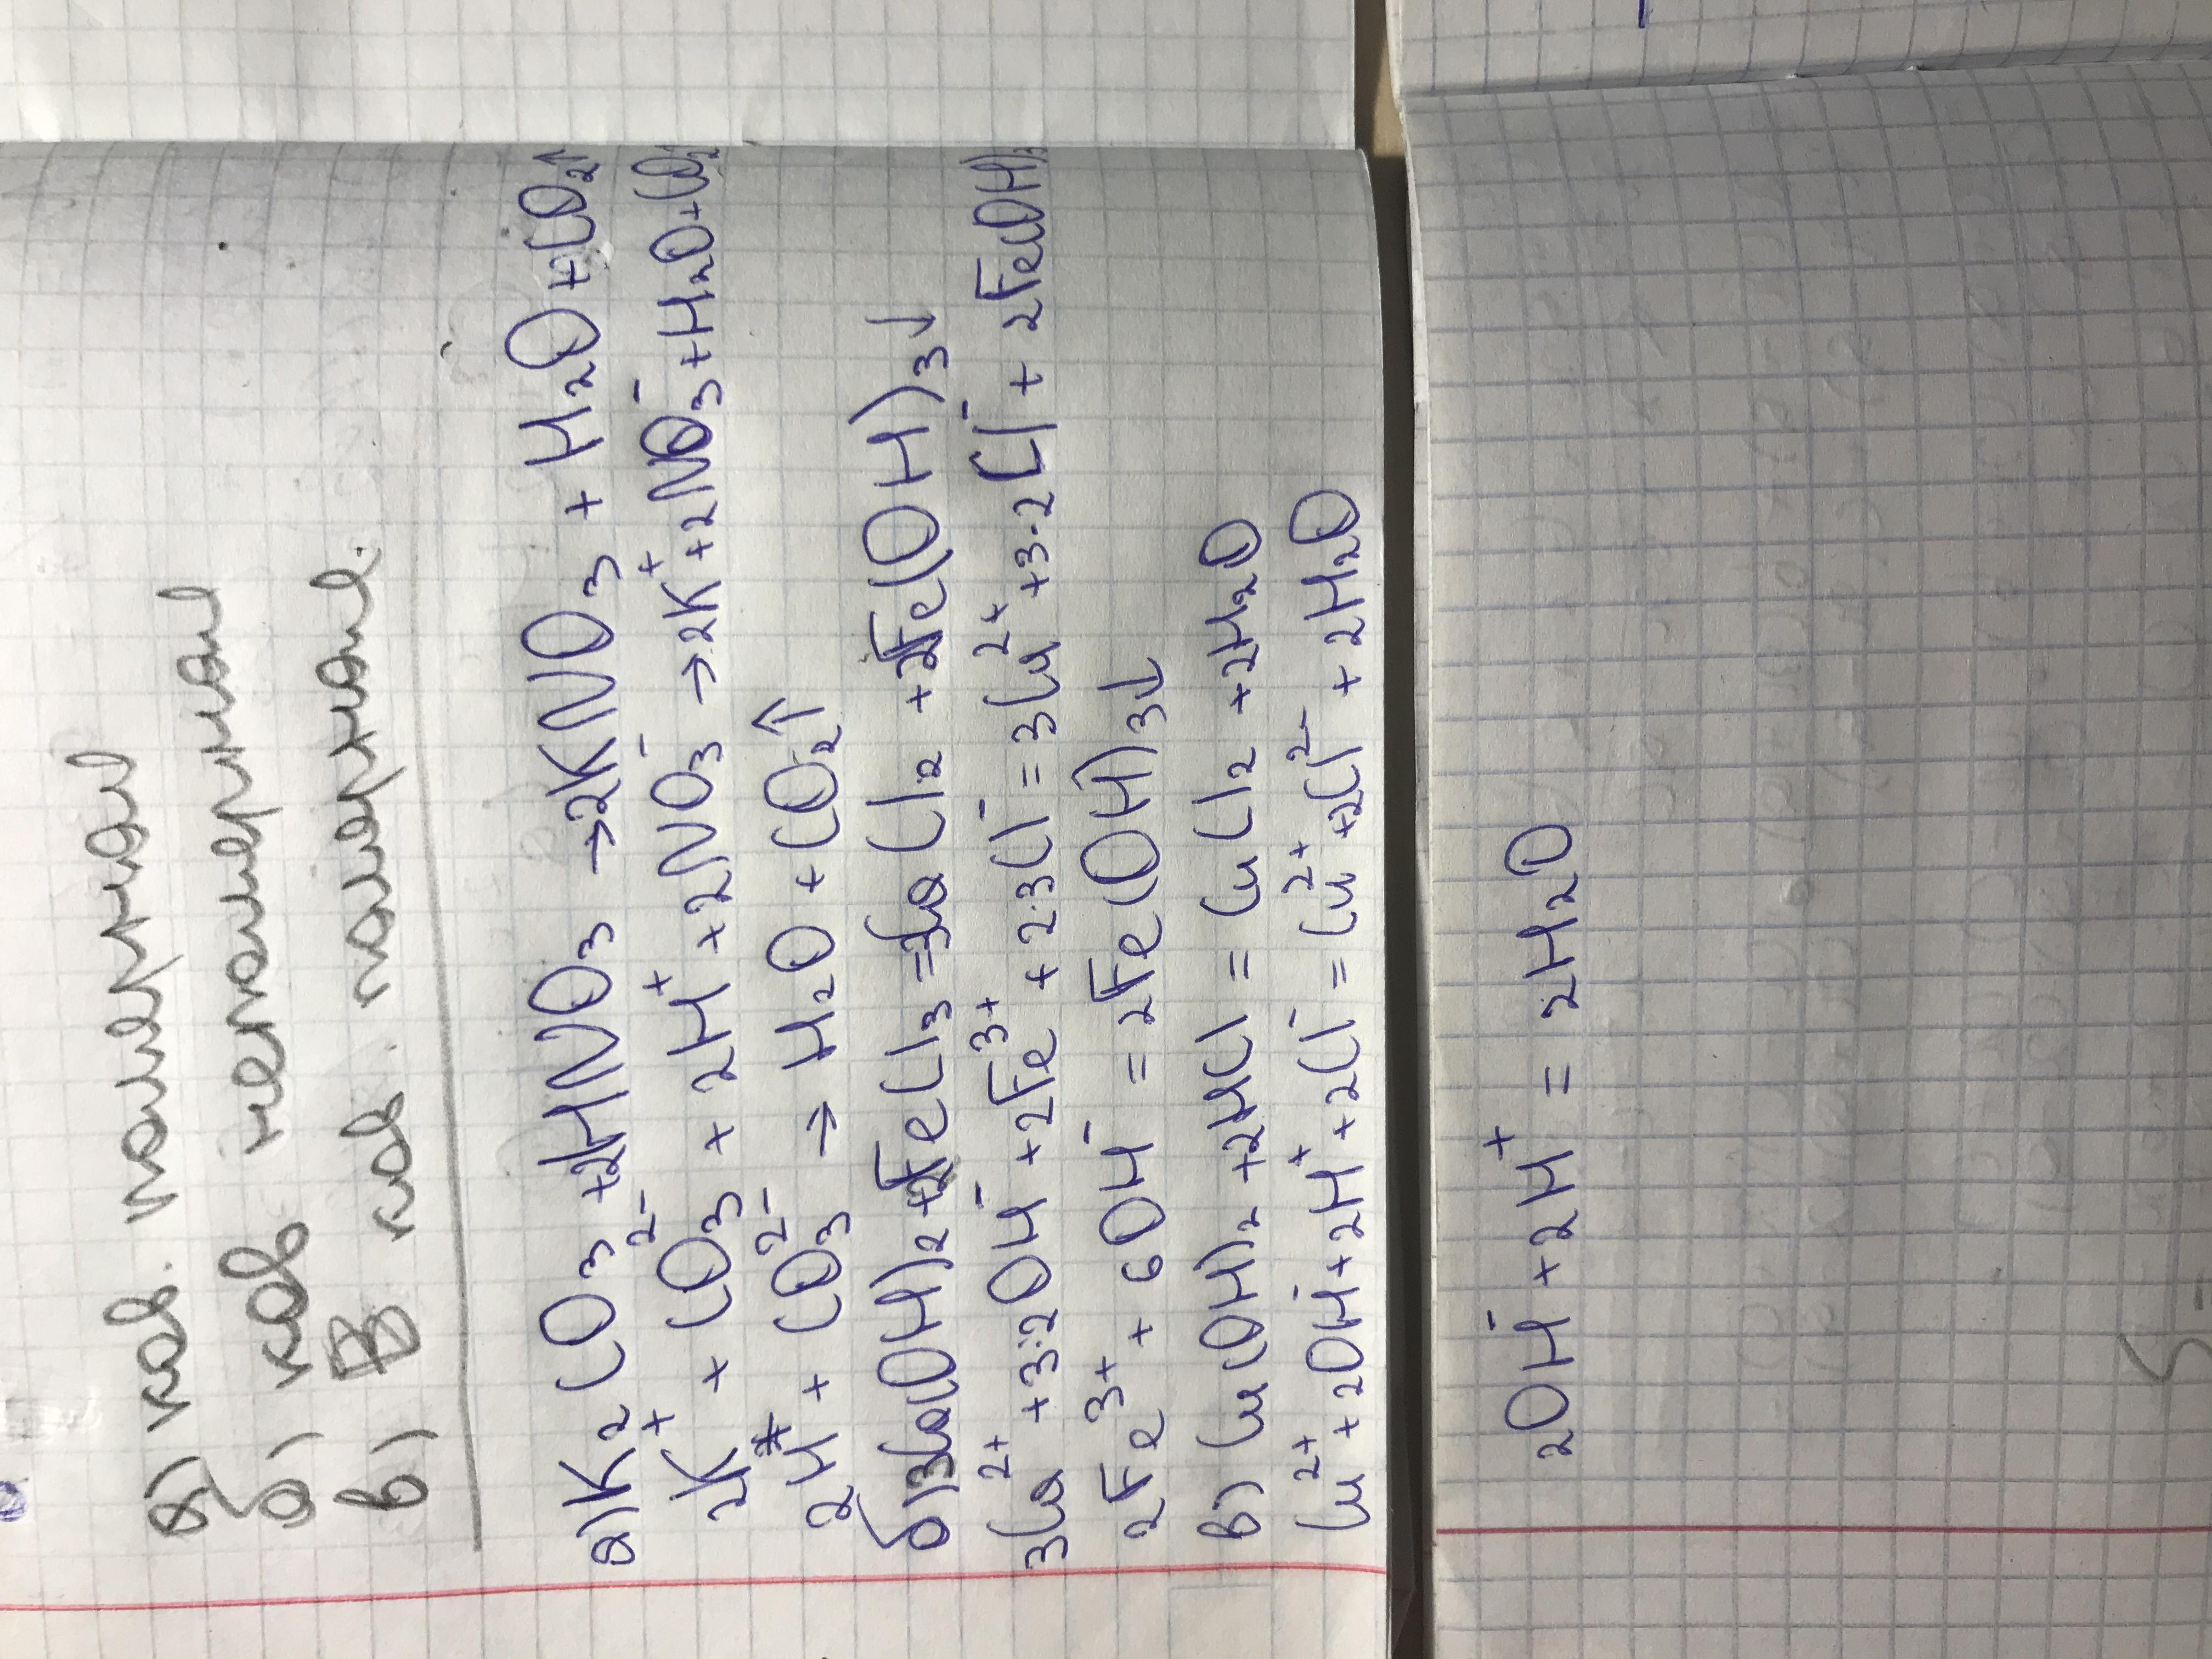 а)
б)
в)
а) K₂CO₃ + 2HNO₃ → 2KNO₃ + H₂O + CO₂↑
2K⁺ + CO₃²⁻ + 2H⁺ + 2NO₃⁻ → 2K⁺ + 2NO₃⁻ + H₂O + CO₂
2H⁺ + CO₃²⁻ → H₂O + CO₂↑
б) 3Ca(OH)₂ + 2FeCl₃ = 3CaCl₂ + 2Fe(OH)₃↓
3Ca²⁺ + 3·2OH⁻ + 2Fe³⁺ + 2·3Cl⁻ = 3Ca²⁺ + 3·2Cl⁻ + 2Fe(OH)₃
2Fe³⁺ + 6OH⁻ = 2Fe(OH)₃↓
в) Cu(OH)₂ + 2HCl = CuCl₂ + 2H₂O
Cu²⁺ + 2OH⁻ + 2H⁺ + 2Cl⁻ = Cu²⁺ + 2Cl²⁻ + 2H₂O
2OH⁻ + 2H⁺ = 2H₂O